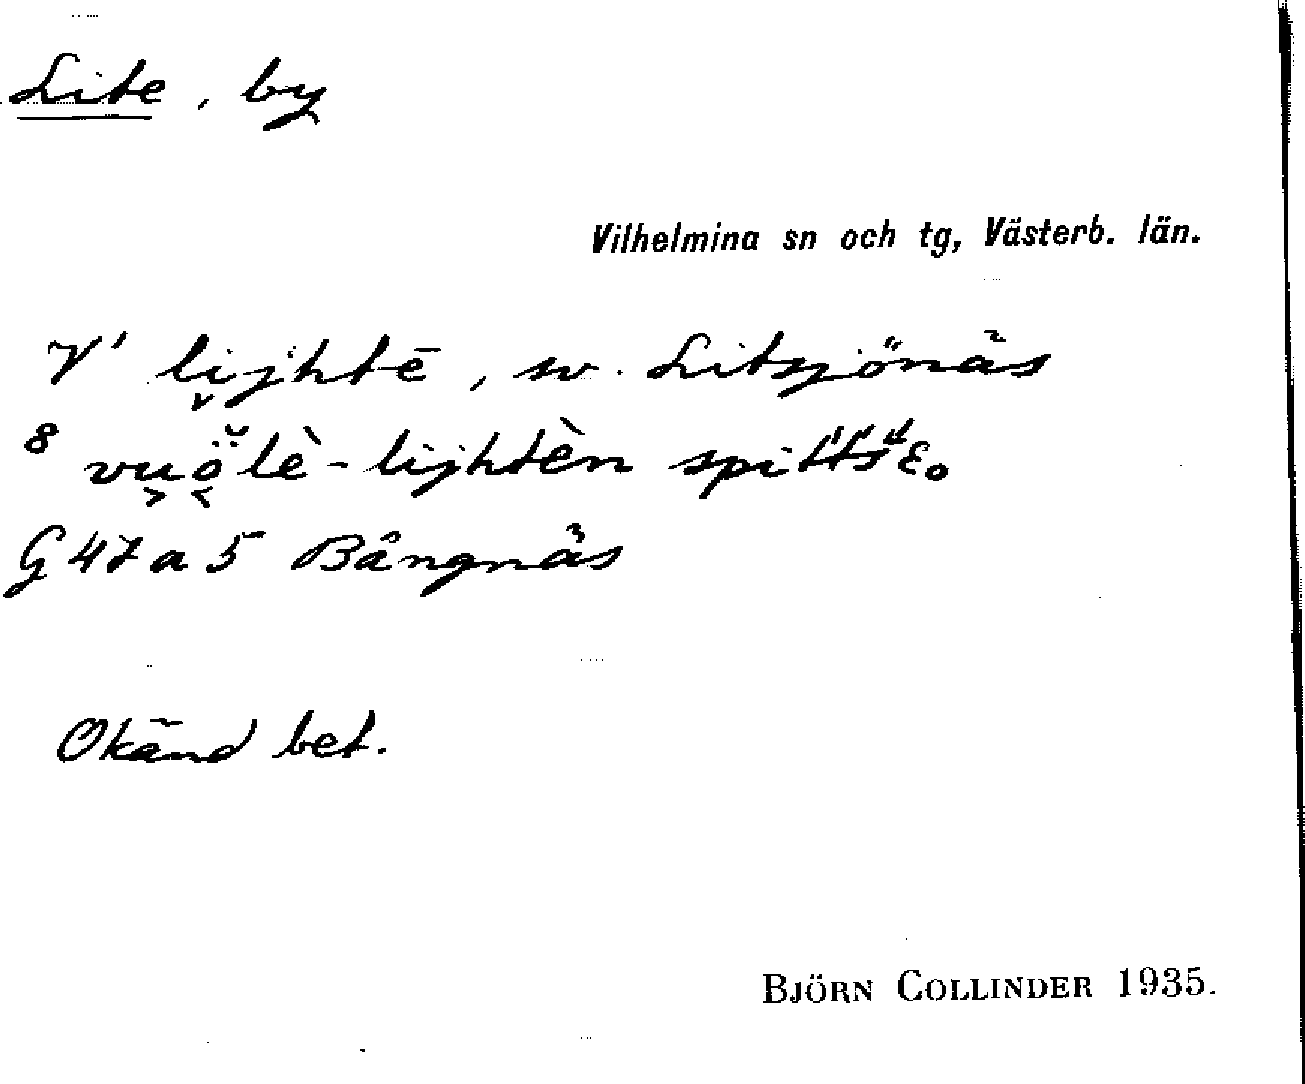 Lite, by
Vilhelmina sn och tg, Västerb. län.
V' li̬jhtē, sv. Litsjönäs
8 vu͐ö̆lè-lijhtèn
G 47 a 5 Bångnäs
Okänd bet.
BJÖRN COLLINDER 1935.